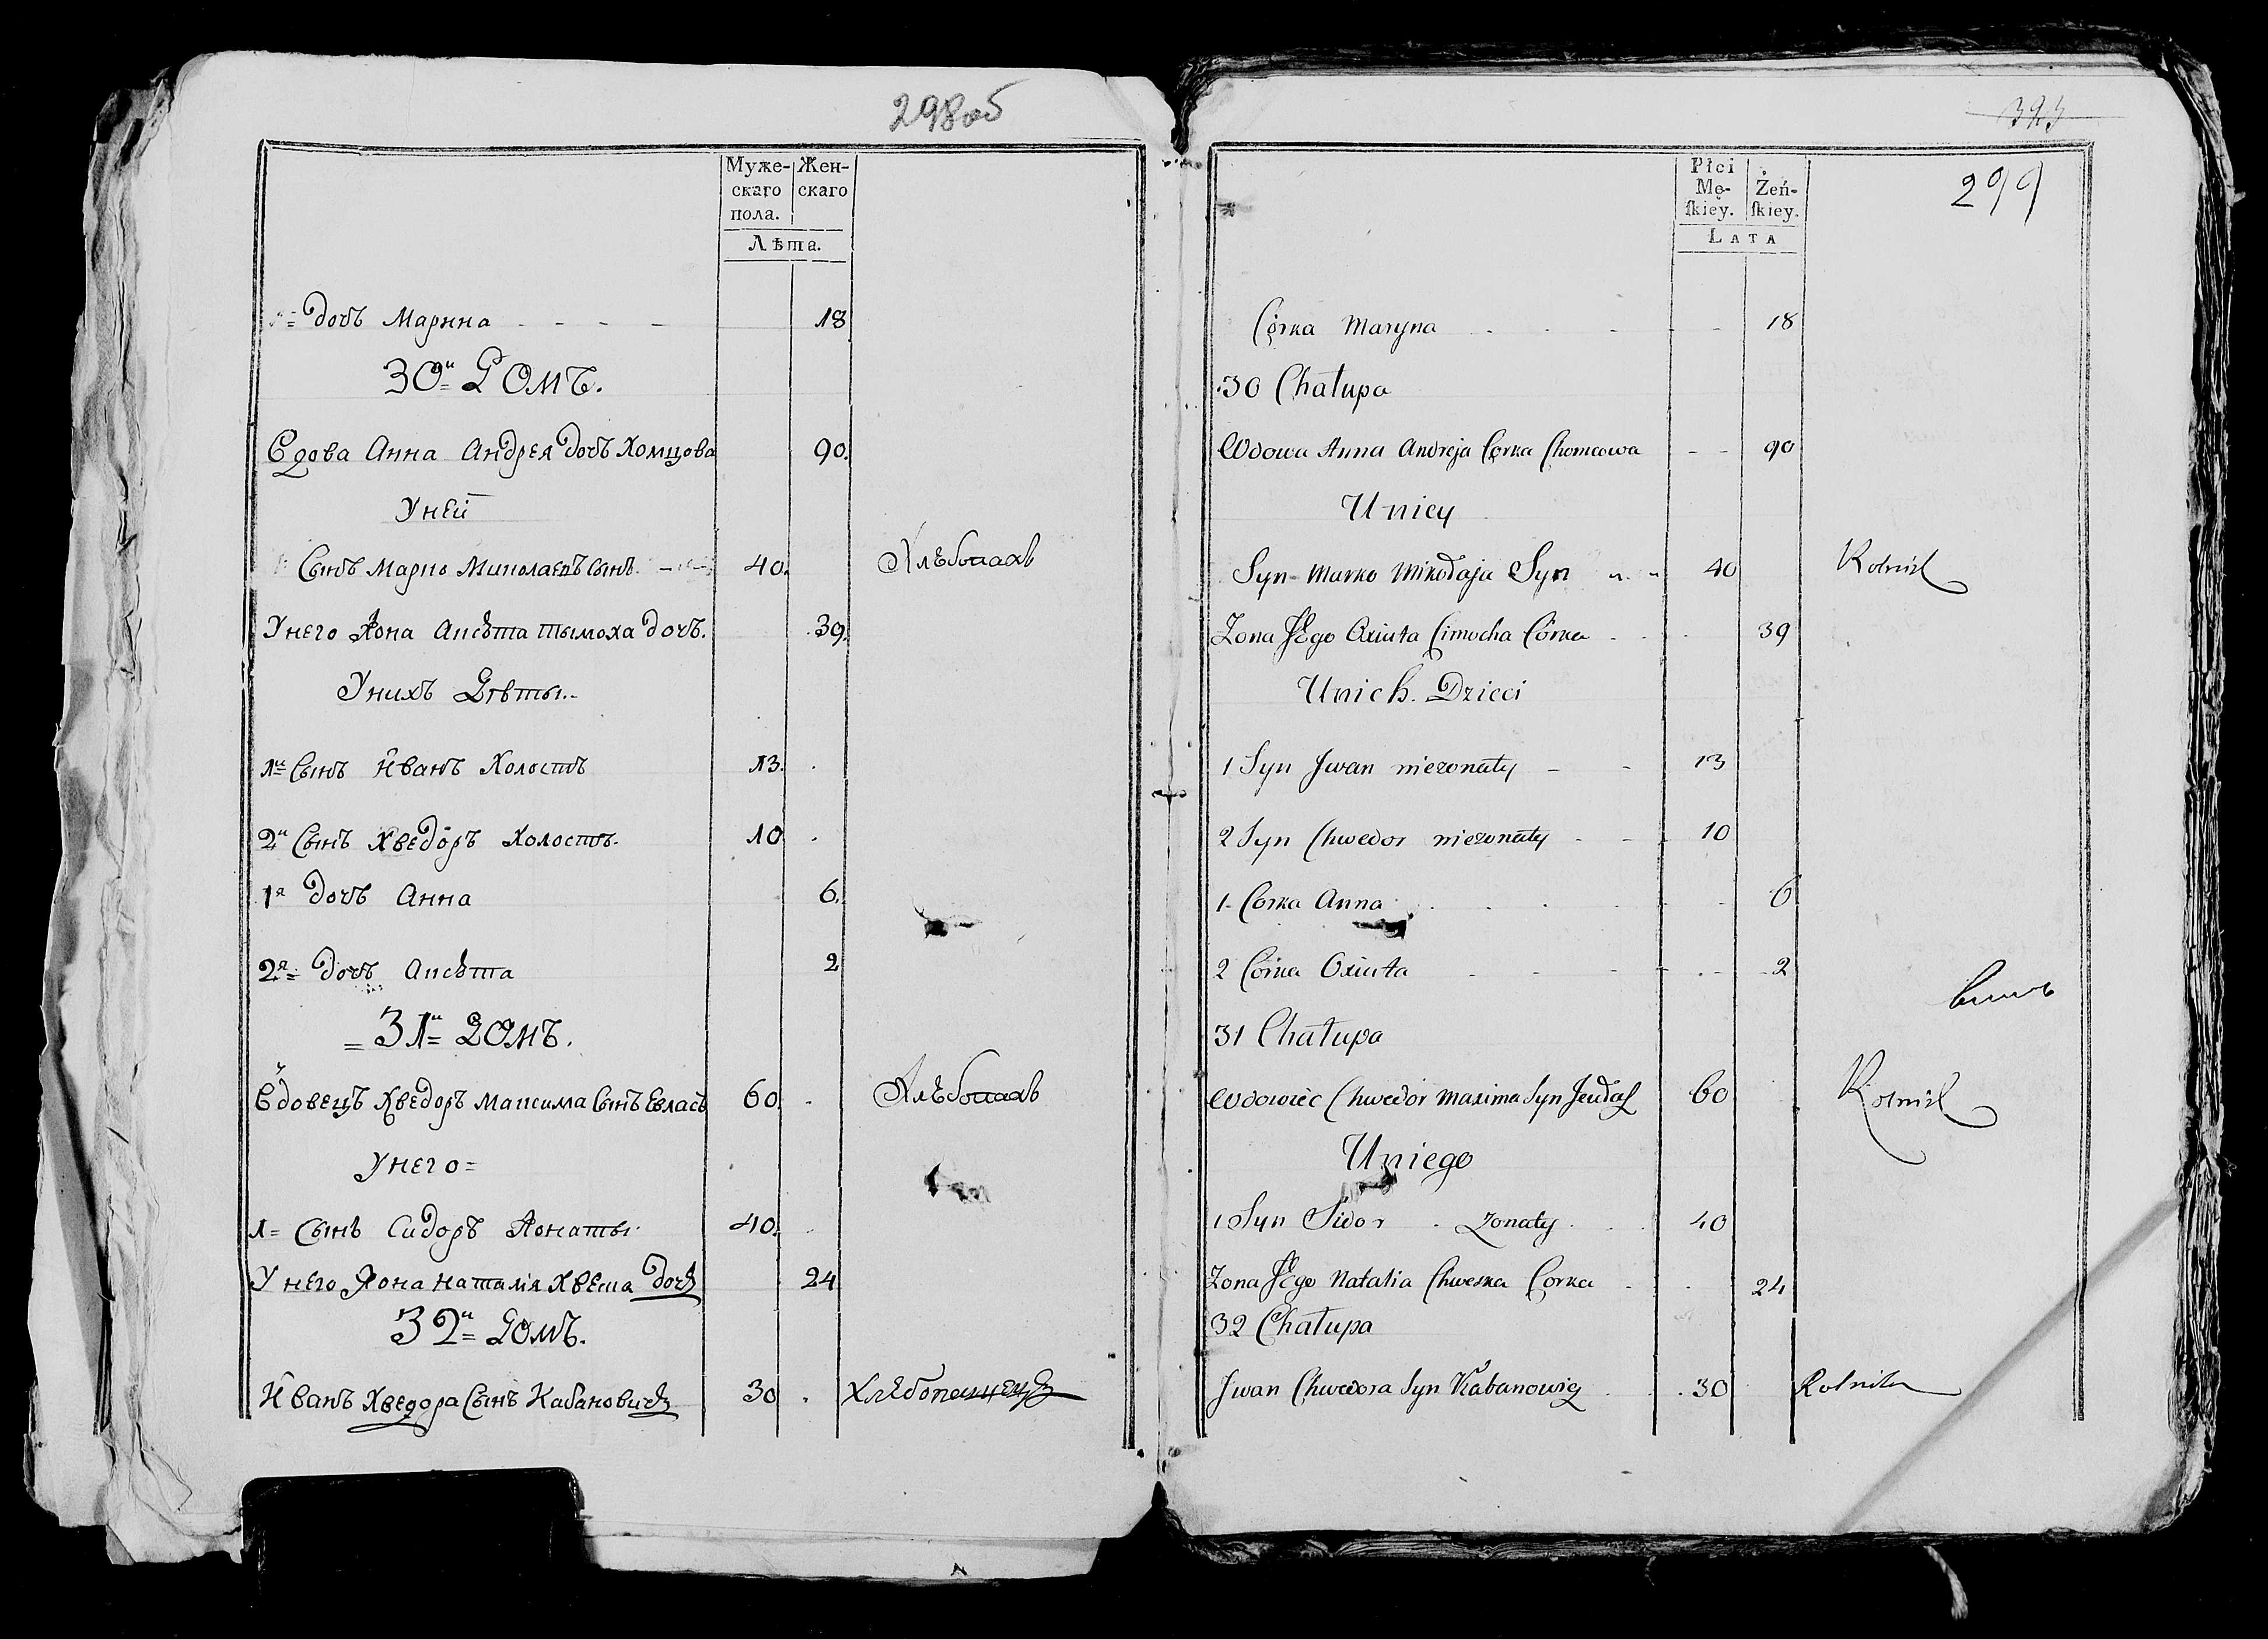 298об
Муже- Жен-
скаго скаго
пола.
Лѣта.
дочь Марина 18
30й Домъ.
Вдова Анна Андрея дочь Хомцова 90.
Уней
Сынъ Марко Миколаевъ Сынъ 40. Хлѣбопахъ
Унего Жона Аксюта Тымоха дочь. 39.
Унихъ Дѣти.
1й Сынъ Иванъ Холостъ 13.
2й Сынъ Хведоръ Холостъ. 10
1я дочь Анна 6.
2я дочь Аксюта 2
31й Домъ.
Вдовецъ Хведоръ Максима Сынъ 60. Хлѣбопахъ
Унего
1 Сынъ Сидоръ Жонаты 40.
Унего Жона Наталія Хвеска дочь 24
32й Домъ.
Иванъ Хведора Сынъ Кабановичъ 30
323
299
Płci
Mę- Żeń-
ſkiey. ſkiey.
LATA
Córka Maryna 18
30 Chałupa
Wdowa Anna Andreja Córka Chomcowa 90
Uniey
Syn Marko Mikołaja Syn 40 Rolnik
Zona Jego Oxiuta Cimocha Córka 39
Unich Dzieci
1 Syn Jwan niezonaty 13
2 Syn Chwedor niezonaty 10
1 Corka Anna 6
2 Córka Oxiuta 2
31 Chałupa
Wdowiec Chwedór Maxima Syn 60 Rolnik
Uniego
1 Syn Sidor Zonaty 40
Zona Jego Natalia Chweska Corka 24
32 Chałupa
Jwan Chwedora Syn Kabanowicz 30 Rolnik